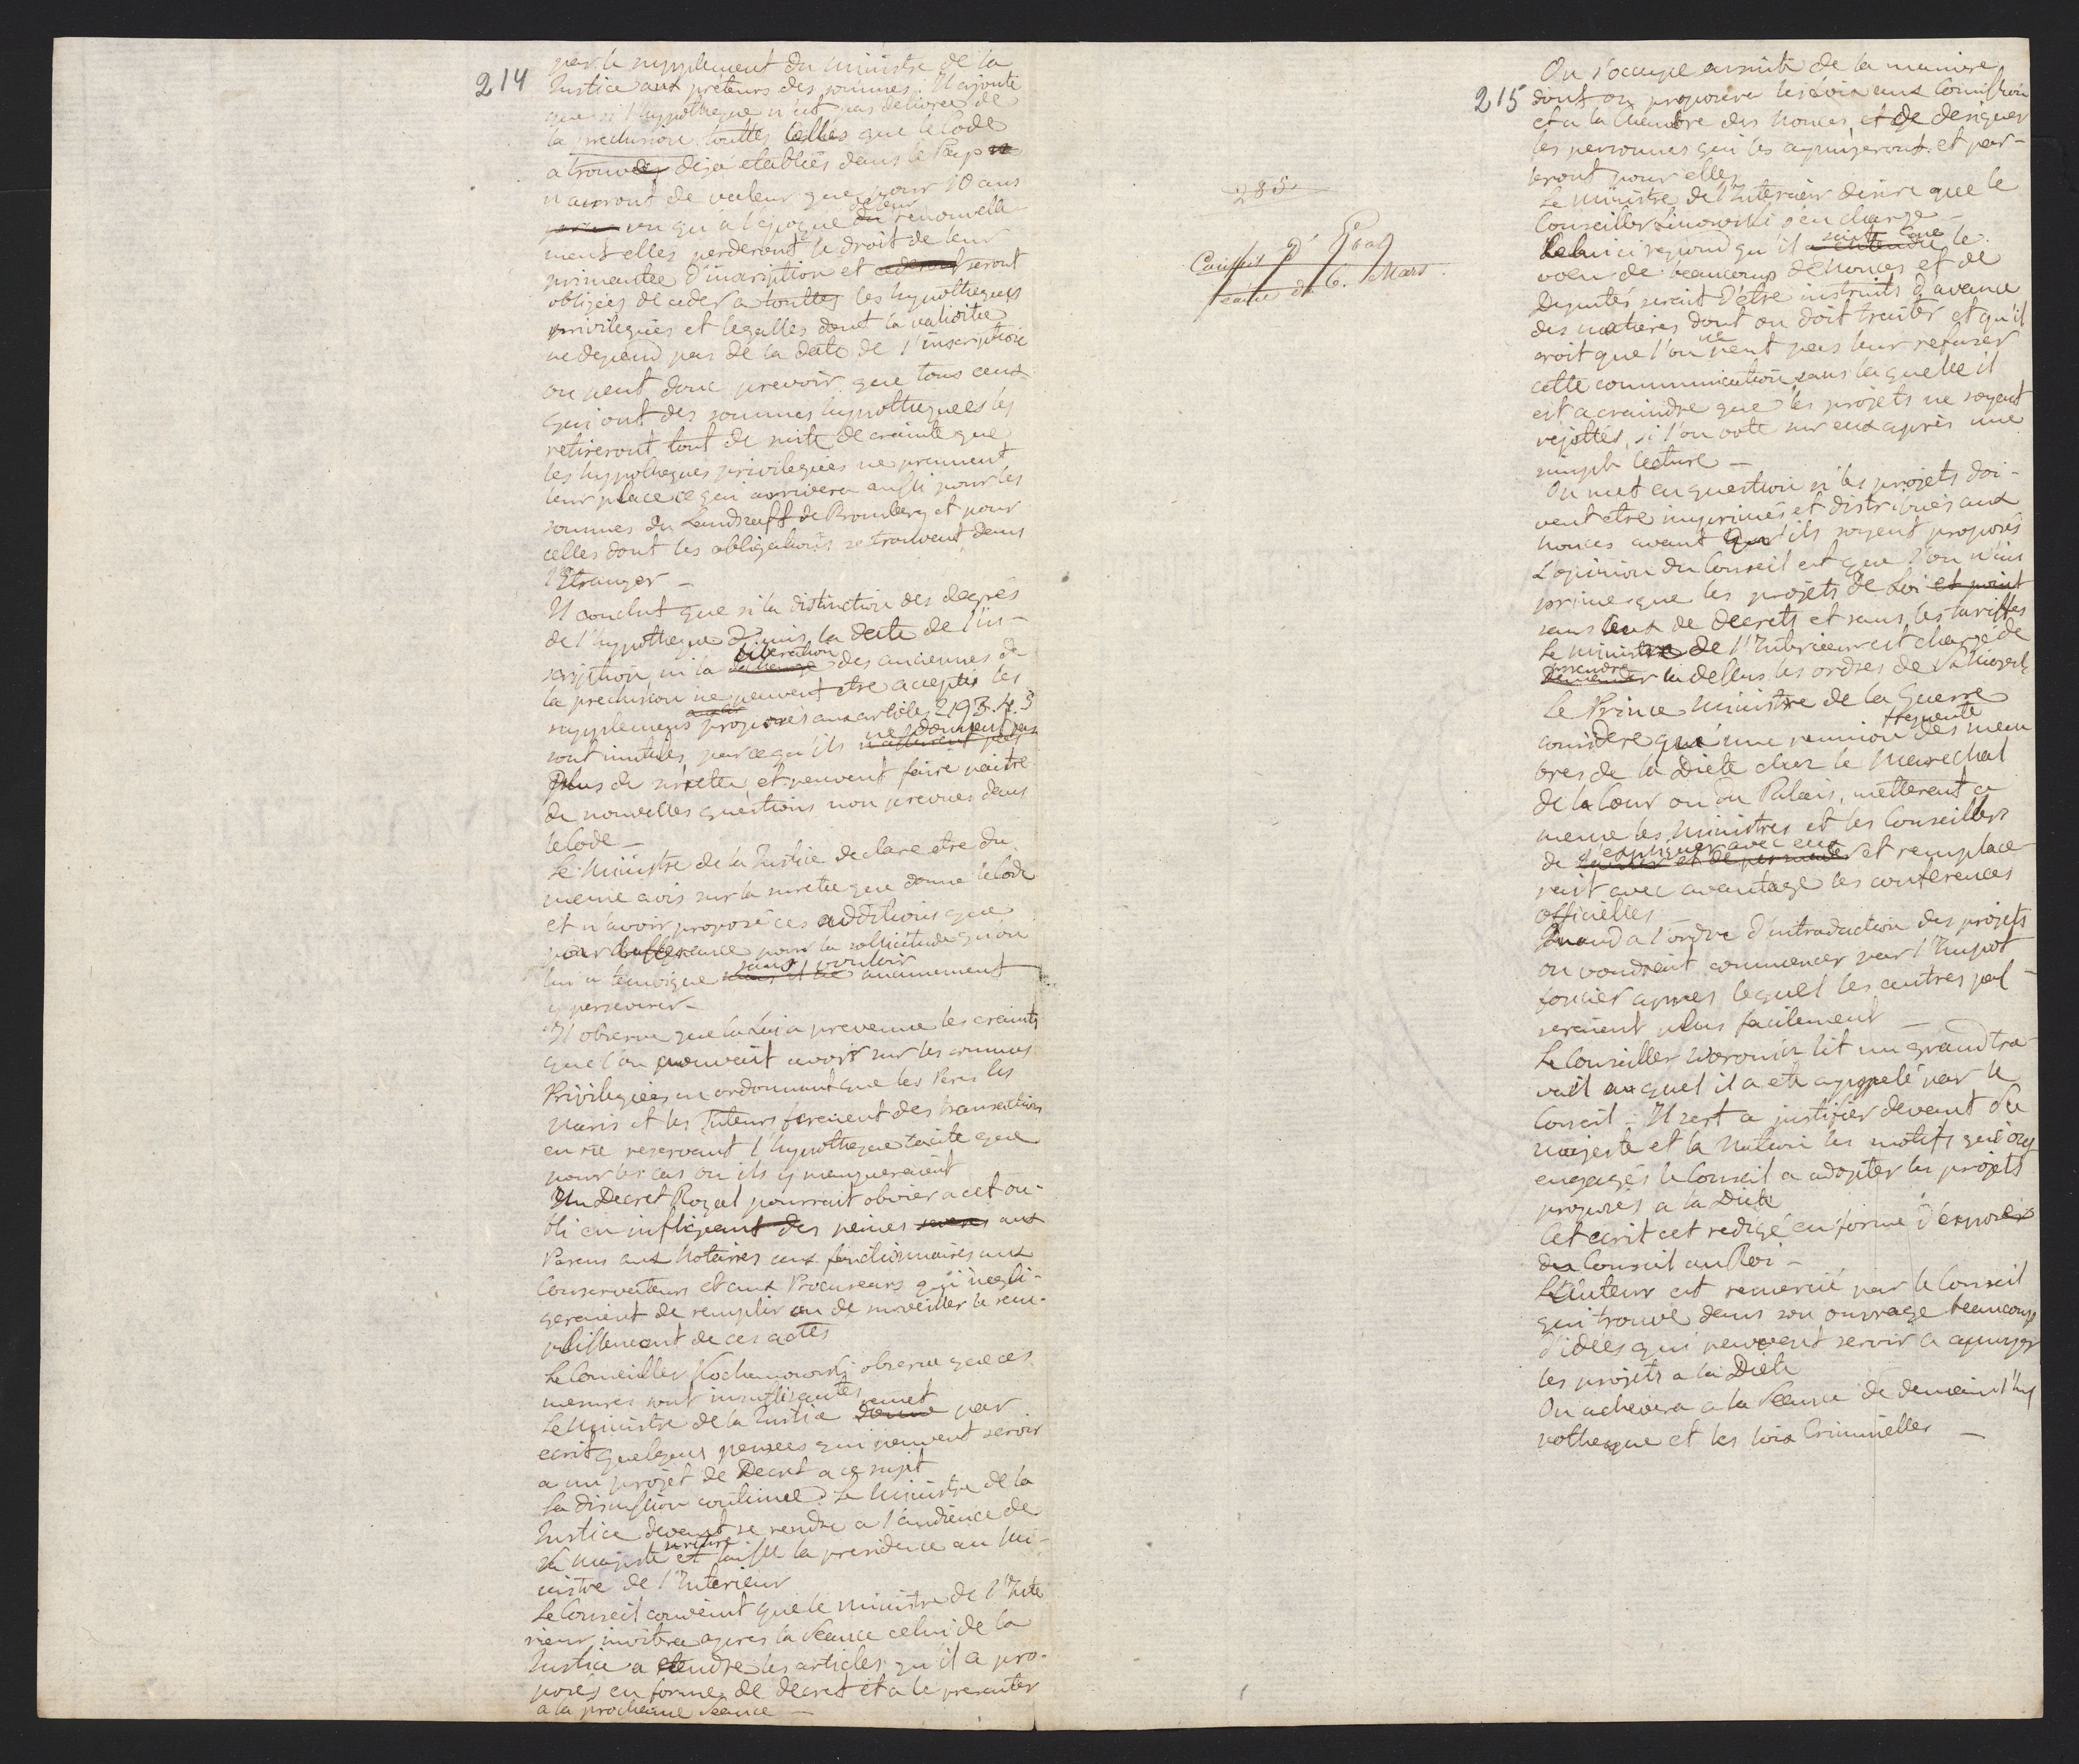 214
par le supplement du ministre de la
Justice aux préteurs des sommes. Il ajoute
que si l'hypotheque n'est pas delivrée de
la preclusion touttes celles que le Code
a trouvées deja etablies dans le Pays
n'auront de valeur que pour 10 ans
vu qu'a l'epoque de leur renouvelle
ment elles perderont le droit de leur
primautée d'inscription et seront
obligées de ceder a touttes les hypotheques
privilegiées et legalles dont la validitée
ne depend pas de la date de l'inscription
on peut donc prevoir que tous ceux
qui ont des sommes hypothequées les
retireront tout de suite de crainte que
les hypotheques privilegiées ne prennent
leur place ce qui arrivera aussi pour les
sommes du Landschafft de Bromberg et pour
celles dont les obligations se trouvent dans
l'Etranger —
Il conclut que si la distinction des degrés
de l'hypotheque depuis la date de l'in-
scription, ni la liberation des anciennes de
la preclusion ne peuvent etre acceptés les
supplemens proposés aux articles 2193. 4. 5
sont inutiles parcequ'ils ne donnent pas
plus de suretée, et peuvent faire naitre
de nouvelles questions non prevues dans
le Code —
Le Ministre de la Justice declare etre du
meme avis sur la suretée que donne le Code
et n'avoir proposé ces additions que
par defference pour la sollicitude qu'on
lui a temoigné sans vouloir aucunement
y perseverer —
Il observe que la Loi a prevenue les craintes
que l'on pouvait avoir sur les sommes
Privilegiées en ordonnant que les Peres les
Maris et les Tuteurs feraient des transactions
en se reservant l'hypotheque tacite que
pour les cas ou ils y manqueraient
Un Decret Royal pourrait obvier a cet ou-
bli en infligeant des peines aux
Parens aux Notaires aux fonctionnaires aux
Conservateurs et aux Procureurs qui negli-
geraient de remplir ou de surveiller le rem-
plissement de ces actes
Le Conseiller Kochanowski observe que ces
mesures sont insuffisantes
Le Ministre de la Justice remet par
ecrit quelques pensées qui peuvent servir
a un projet de Decret a ce sujet
La discussion continue. Le Ministre de la
Justice devant se rendre a l'audience de
Sa Majesté et laisse la presidence au Mi-
nistre de l'Interieur
Le Conseil convient que le ministre de l'Inte
rieur invitera apres la Seance celui de la
Justice a etendre les articles qu'il a pro-
posés en forme de decret et a le presenter
a la prochaine Seance —
285
Conseil d'Etat
Seance du 6. Mars
215
On s'occupe ensuite de la maniere
dont on proposera les loix aux Comission
et a la Chambre des Nonces, et de designer
les personnes qui les appuyeront et par-
leront pour elles
Le Ministre de l'Interieur desire que le
Conseiller Linowski s'en charge —
Celui ci repond qu'il sait que le
voeu de beaucoup de Nonces et de
Deputés serait d'etre instruits d'avance
des matieres dont on doit traiter et qu'il
croit que l'on ne peut pas leur refuser
cette communication sans laquelle il
est a craindre que les projets ne soyent
rejottés, si l'on vote sur eux après une
simple lecture —
On met en question si les projets doi-
vent etre imprimés et distribués aux
nonces avant qu'ils soyent proposés
L'opinion du Conseil est que l'on n'im
prime que les projets de Loi et point
sans ceux de decrets et sans les tariffes
Le Ministre de l'Interieur est chargé de
prendre la dessus les ordres de Sa Majesté
Le Prince Ministre de la Guerre
considere qu'une reunion frequente des mem
bres de la Diete chez le Marechal
de la Cour ou du Palais, metterent a
meme les Ministres et les Conseillers
de s'expliquer avec eux et remplace-
rait avec avantage les conferences
officielles
Quand a l'ordre d'introduction des projets
on voudrait commencer par l'Impot
foncier apres lequel les autres pas-
seraient plus facilement —
Le Conseiller Woronicz lit un grand tra-
vail auquel il a eté appelé par le
Conseil. Il sert a justifier devant Sa
Majesté et la Nation les motifs qui ont
engagés le Conseil a adopter les projets
proposés a la Diete
Cet ecrit est redigé en forme d'exposés
du Conseil au Roi —
L'Auteur est remercié par le Conseil
qui trouve dans son ouvrage beaucoup
d'idées qui peuvent servir a appuyer
les projets a la Diete
On achevera a la Seance de demain l'hy
potheque et les loix Criminelles —